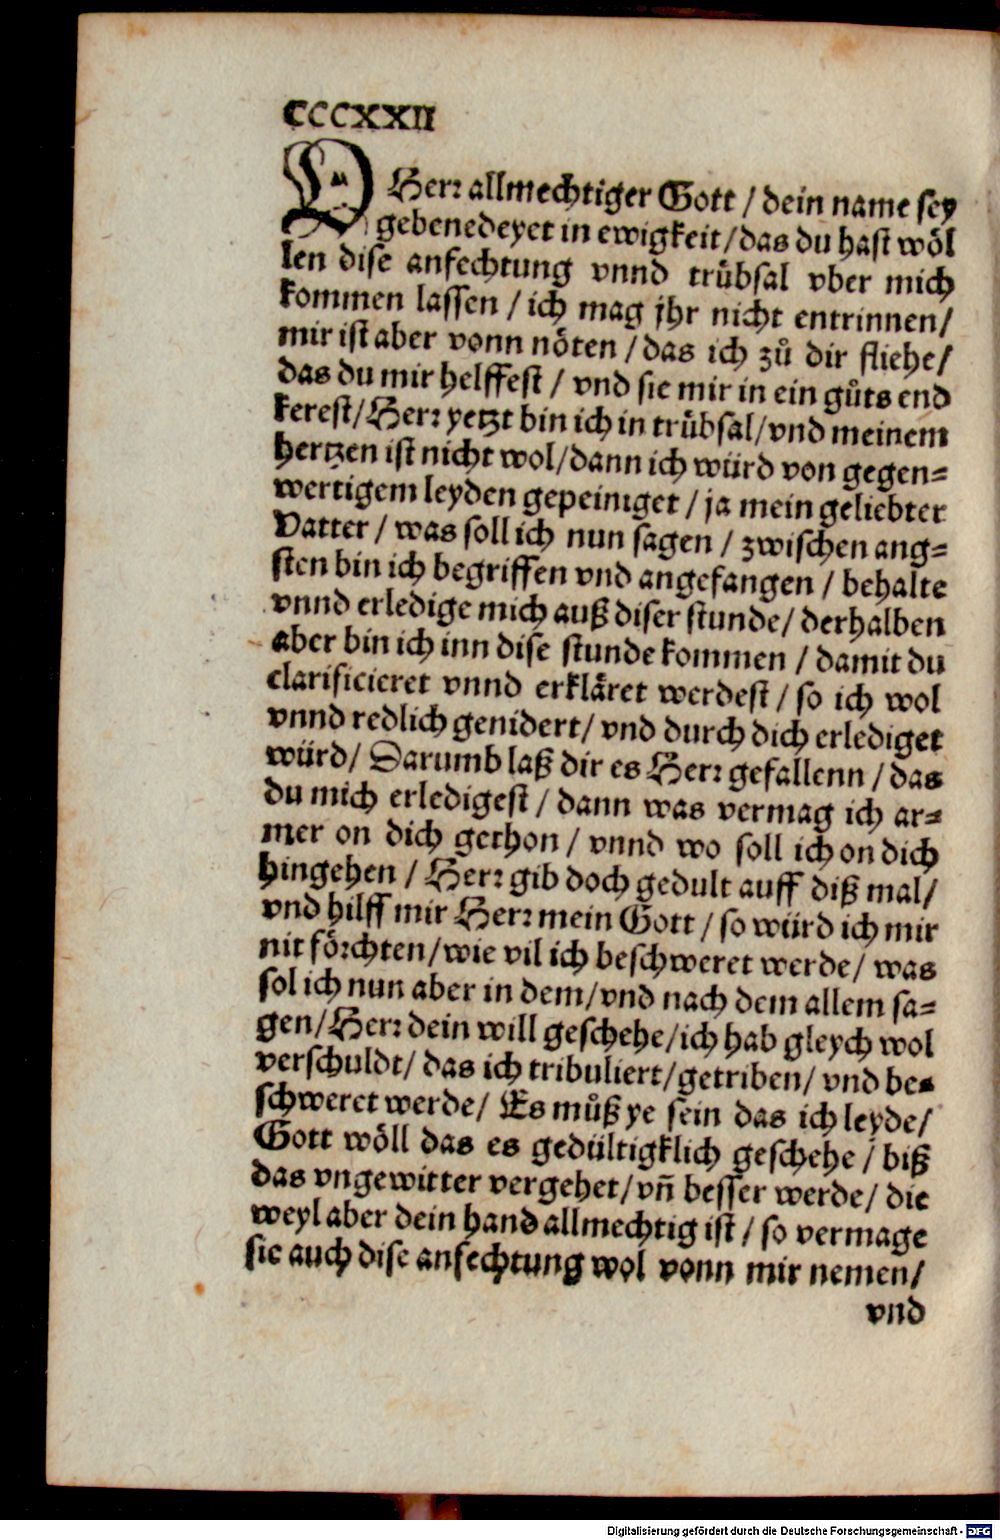 CCCXXII
O Herr allmechtiger Gott / dein name sey
gebenedeyet in ewigkeit / das du hast wöl
len dise anfechtung vnnd trůbsal vber mich
kommen lassen / ich mag jhr nicht entrinnen /
mir ist aber vonn nöten / das ich zů dir fliehe /
das du mir helffest / vnd sie mir in ein gůts end
kerest / Herr yetzt bin ich in trůbsal / vnd meinem
hertzen ist nicht wol / dann ich würd von gegen⸗
wertigem leyden gepeiniget / ja mein geliebter
Vatter / was soll ich nun sagen / zwischen ang⸗
sten bin ich begriffen vnd angefangen / behalte
vnnd erledige mich auß diser stunde / derhalben
aber bin ich inn dise stunde kommen / damit du
clarificieret vnnd erkläret werdest / so ich wol
vnnd redlich genidert / vnd durch dich erlediget
würd / Darumb laß dir es Herr gefallenn / das
du mich erledigest / dann was vermag ich ar⸗
mer on dich gethon / vnnd wo soll ich on dich
hingehen / Herr gib doch gedult auff diß mal /
vnd hilff mir Herr mein Gott / so würd ich mir
nit förchten / wie vil ich beschweret werde / was
sol ich nun aber in dem / vnd nach dem allem sa⸗
gen / Herr dein will geschehe / ich hab gleych wol
verschuldt / das ich tribuliert / getriben / vnd be⸗
schweret werde / Es můß ye sein das ich leyde /
Gott wöll das es gedültigklich geschehe / biß
das vngewitter vergehet / vñ besser werde / die
weyl aber dein hand allmechtig ist / so vermage
sie auch dise anfechtung wol vonn mir nemen /
vnd
Digitalisierung gefördert durch die Deutsche Forschungsgemeinschaft - DFG